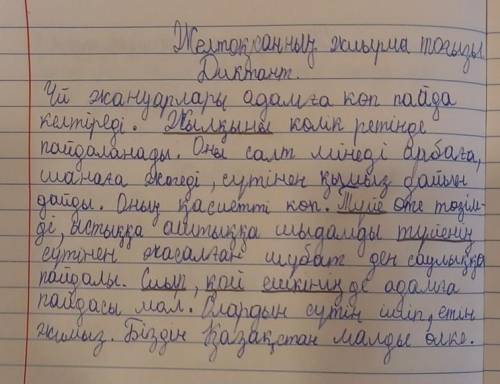 Желтоқсанның жиырма тоғызы
Диктант.
Үй жануарлары адамға көп пайда
келтіреді. Жылқыны көлік ретінде
пайдаланады. Оны салт мінеді арбаға,
шанаға жегеді, сүтінен қымыз дайын
дайды. Оның қасиетті көп. Түйе өте төзім-
ді, ыстыққа аштыққа шыдамды түйенің
сүтінен жасалған шұбат ден саулыққа
пайдалы. Сиыр, қой ешкінің де адамға
пайдасы мол. Олардын сүтін ішіп, етін
жиміз. Біздін Қазақстан малды өлке.